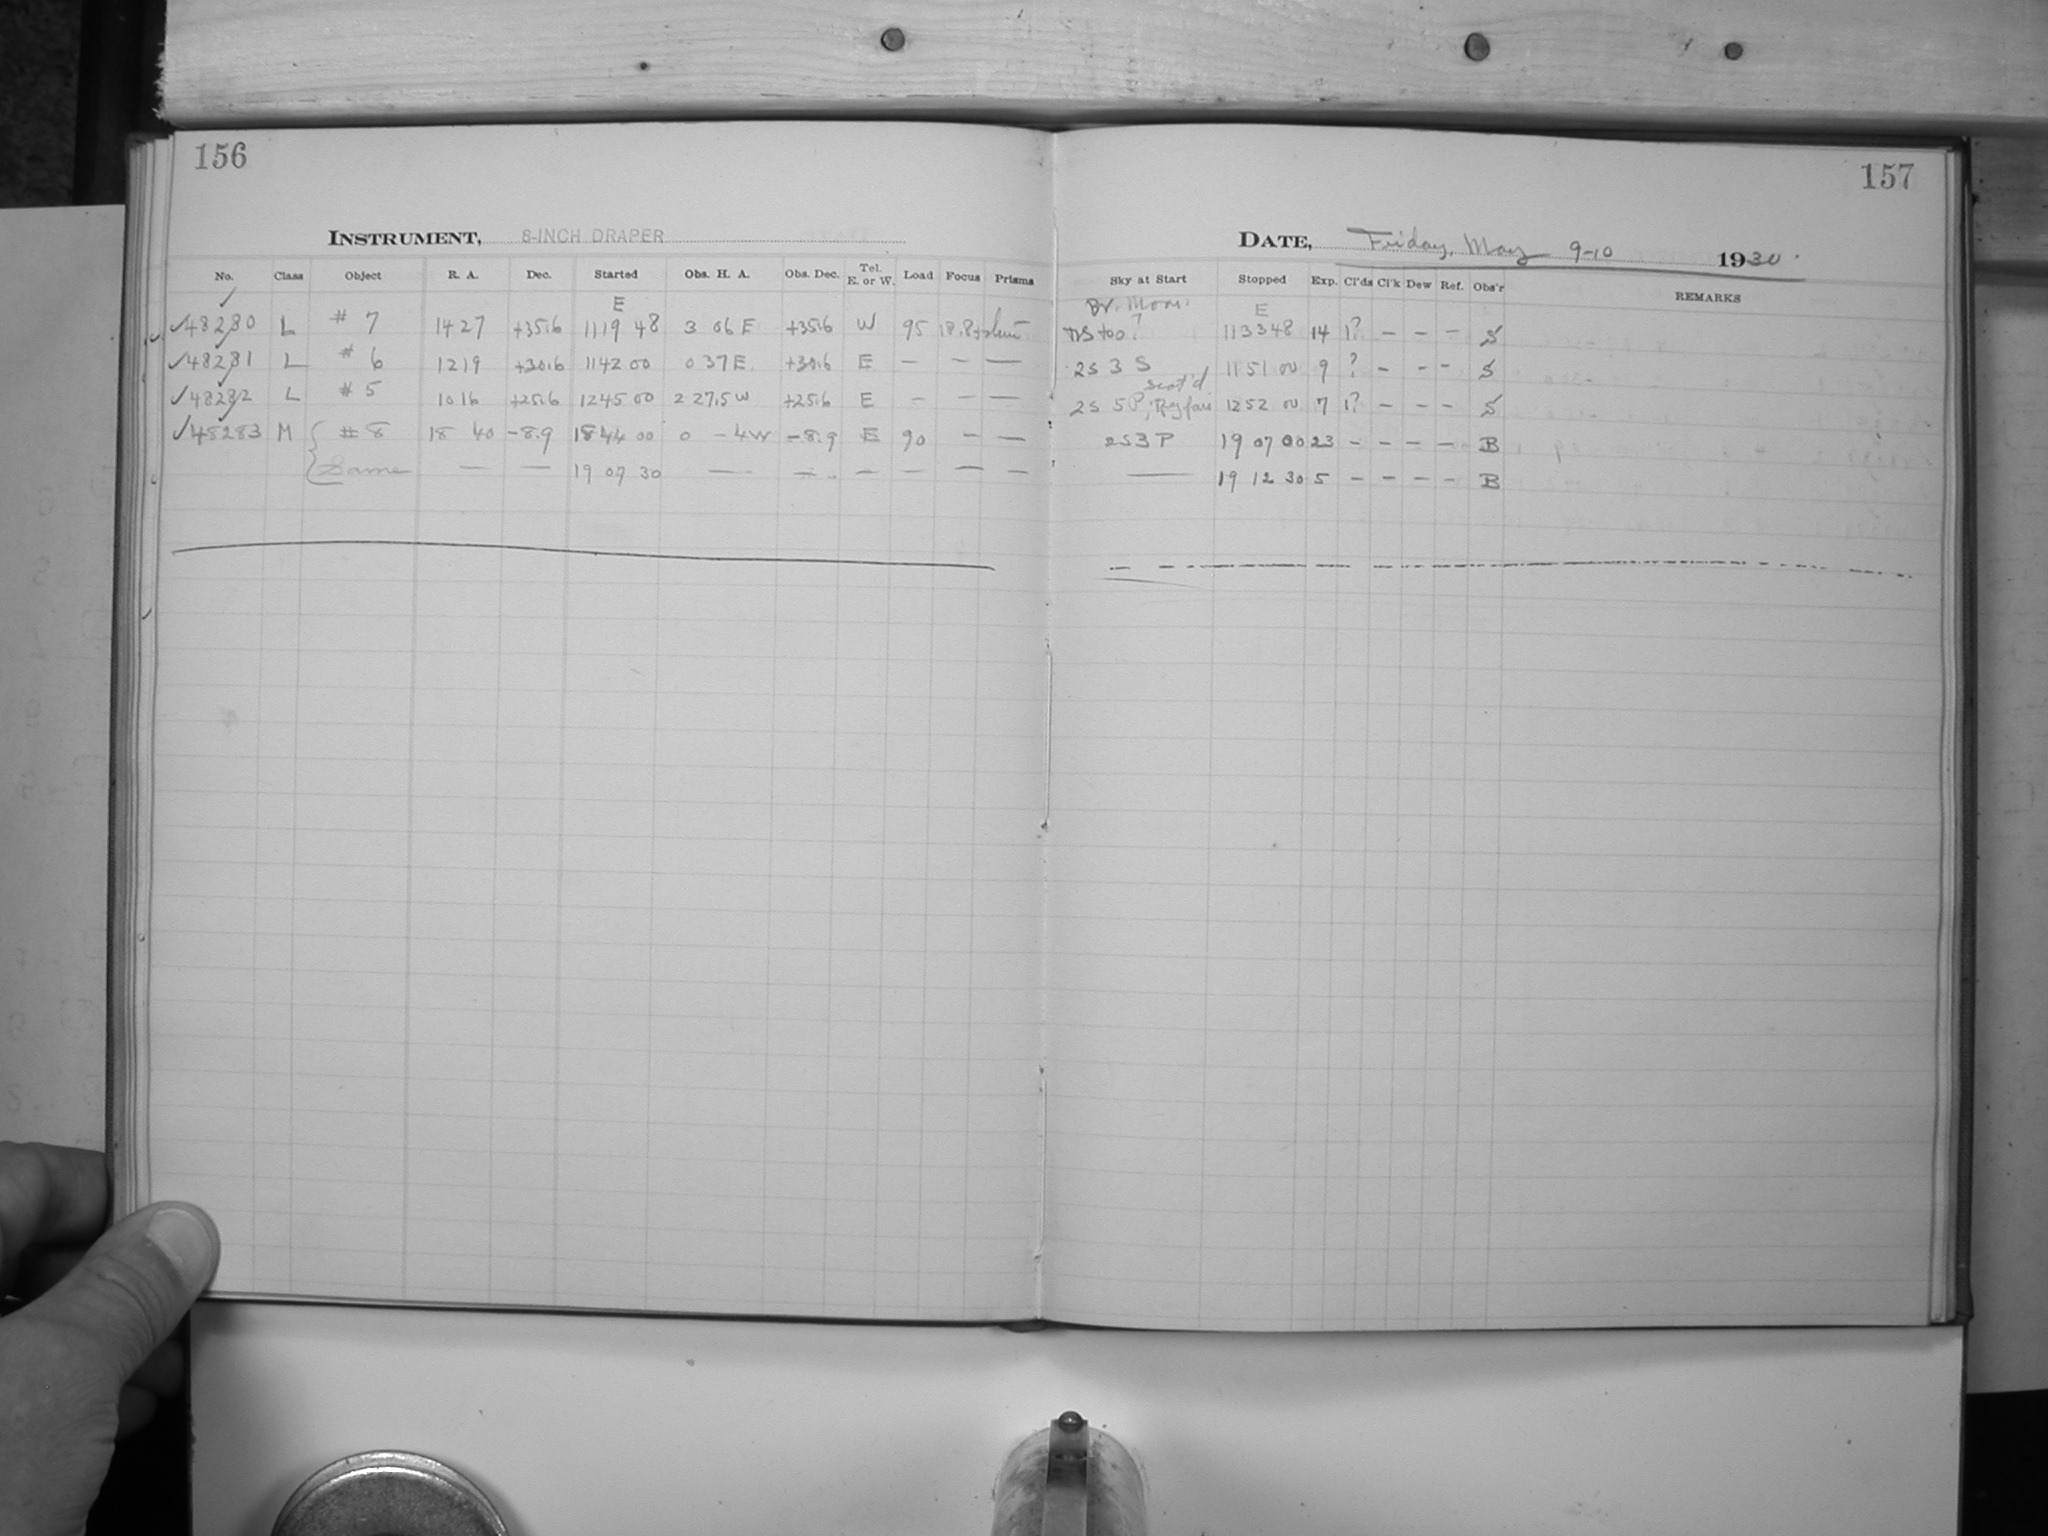 156
157
INSTRUMENT, 8-INCH DRAPER
DATE, Friday, May 9-10 1930.
No. Class Object R. A. Dec. Started Obs. H. A. Obs. Dec. Tel. E. or W. Load Focus Prisms
Sky at Start Stopped Exp. Cl'ds Cl'k Dew Ref. Obs'r REMARKS
E Br. Moon. E
✓48280 L # 7 14 27 +35.6 11 19 48 3 06 E +35.6 W 95 11 33 48 14 1? – – – S
✓48281 L # 6 12 19 +30.6 11 42 00 0 37 E +30.6 E – – — 2s 3 S 11 51 00 9 ? – – – S
scat'd
✓48282 L # 5 10 16 +25.6 12 45 00 2 27.5 W +25.6 E – – — 2s 5P, 12 52 00 7 1? – – – S
✓48283 M # 8 18 40 –8.9 18 44 00 0 – 4W –8.9 E 90 – — 2s3 P 19 07 00 23 – – – – B
Same — — 19 07 30 — — – – — – — 19 12 30 5 – – – – B